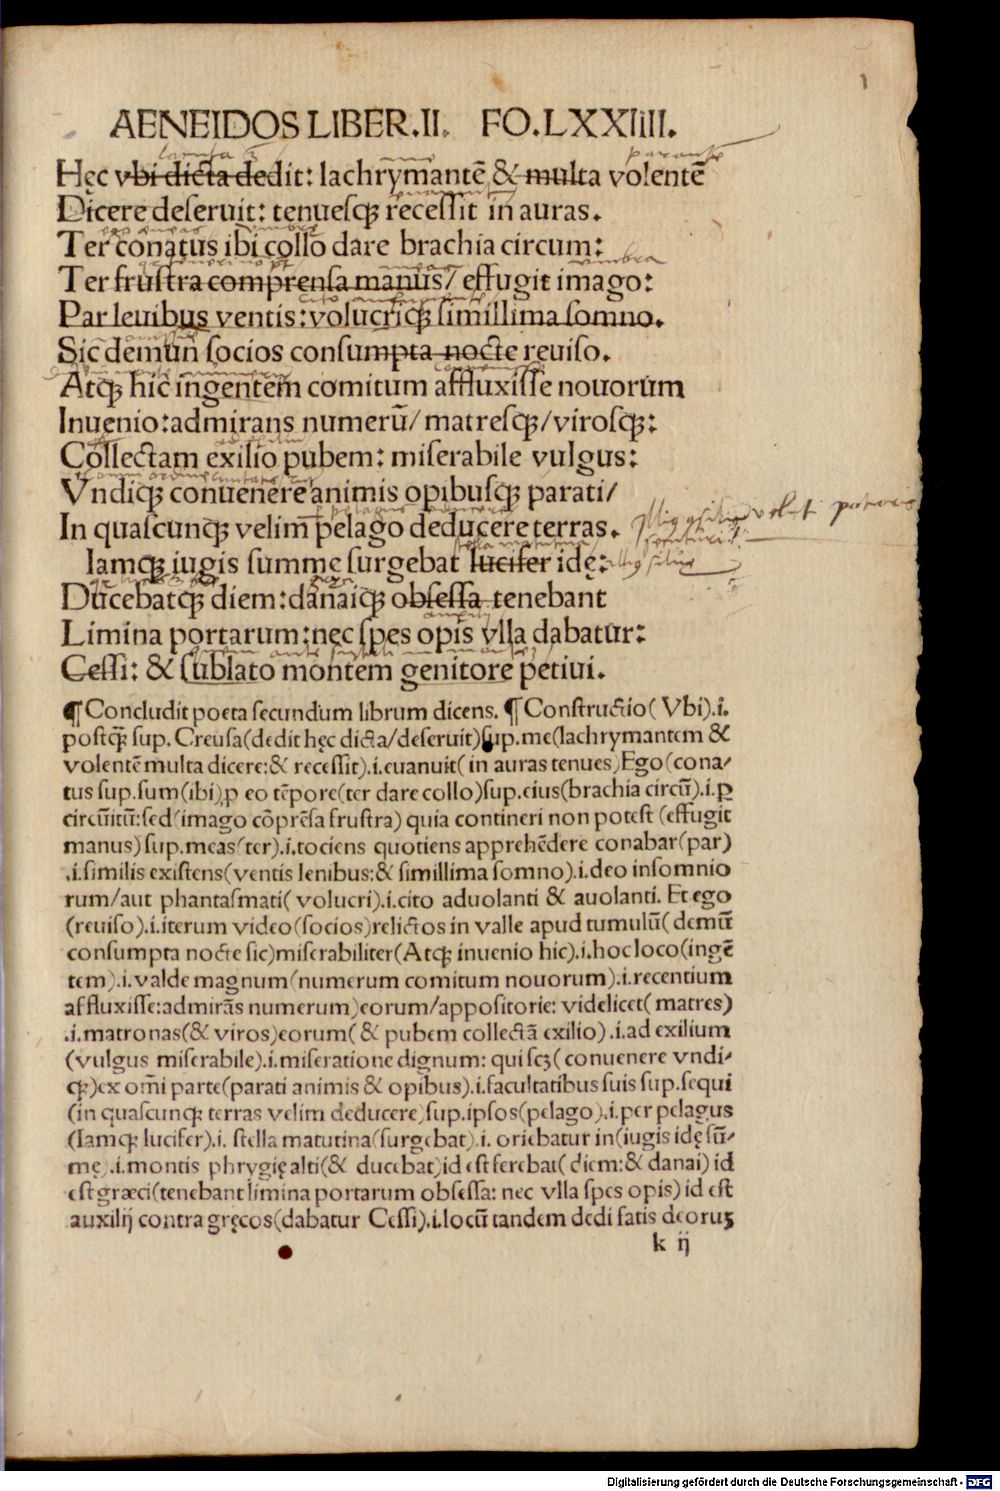 AENEIDOS LIBER.II. FO.LXXIIII.
Hęc vbi dicta dedit: lachrymantē & multa volentē
Dicere deseruit: tenuesqꝫ recessit in auras.
Ter conatus ibi collo dare brachia circum:
Ter frustra comprensa manus/ effugit imago:
Par leuibus ventis: volucriqꝫ simillima somno.
Sic demum socios consumpta nocte reuiso.
Atqꝫ hic ingentem comitum affluxisse nouorum
Inuenio: admirans numerū/ matresqꝫ/ virosqꝫ:
Collectam exilio pubem: miserabile vulgus:
Vndiqꝫ conuenere animis opibusqꝫ parati/
In quascunqꝫ velim pelago deducere terras.
Iamqꝫ iugis summę surgebat lucifer idę:
Ducebatqꝫ diem: danaiqꝫ obsessa tenebant
Limina portarum: nec spes opis vlla dabatur:
Cessi: & sublato montem genitore petiui.
¶ Concludit poeta secundum librum dicens. ¶ Constructio( Vbi).i.
postqꝫ̄ sup. Creusa(dedit hęc dicta/deseruit)sup.me(lachrymantem &
volentē multa dicere:& recessit).i.euanuit( in auras tenues)Ego(cona/
tus sup.sum(ibi)ꝓ eo tēpore(ter dare collo)sup.eius(brachia circū).i.ꝑ
circūitū:sed(imago cōprēsa frustra) quia contineri non potest (effugit
manus)sup.meas(ter).i.tociens quotiens apprehēdere conabar(par)
.i.similis existens(ventis lenibus:& simillima somno).i.deo insomnio
rum/aut phantasmati( volucri).i.cito aduolanti & auolanti. Et ego
(reuiso).i.iterum video(socios)relictos in valle apud tumulū( demū
consumpta nocte sic)miserabiliter(Atqꝫ inuenio hic).i.hoc loco(ingē
tem).i.valde magnum(numerum comitum nouorum).i.recentium
affluxisse:admirās numerum)eorum/appositorie: videlicet( matres)
.i.matronas(& viros)eorum( & pubem collectā exilio).i.ad exilium
(vulgus miserabile).i.miseratione dignum: qui scꝫ( conuenere vndi/
qꝫ)ex omī parte(parati animis & opibus).i.facultatibus suis sup.sequi
(in quascunqꝫ terras velim deducere)sup.ipsos(pelago).i.per pelagus
(Iamqꝫ lucifer).i. stella matutina(surgebat).i. oriebatur in(iugis idę sū/
mę).i.montis phrygię alti(& ducebat)id est ferebat( diem:& danai) id
est græci(tenebant limina portarum obsessa: nec vlla spes opis) id est
auxilij contra gręcos(dabatur Cessi).i.locū tandem dedi fatis deoruꝫ
k ij
Digitalisierung gefördert durch die Deutsche Forschungsgemeinschaft - DFG